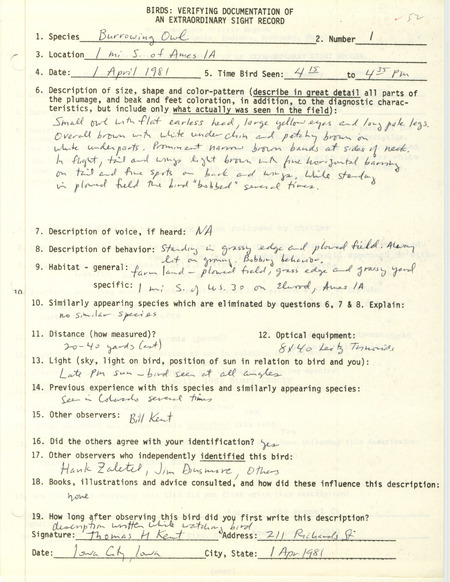 BIRDS: VERIFYING DOCUMENTATION OF
AN EXTRAORDINARY SIGHT RECORD
52
1. Species Burrowing Owl 2. Number 1
3. Location 1 mi S. of Ames IA
4. Date: 1 April 1981 5. Time Bird Seen: 4 15 to 4 35 Pm
6. Description of size, shape and color-pattern (describe in great detail all parts of
the plumage, and beak and feet coloration, in addition, to the diagnostic charac-
teristics, but include only what actually was seen in the field):
Small owl with flat earless head, large yellow eyes and long pale legs.
Overall brown with white under chin and patchy brown on
white underparts. Prominent narrow brown bands at sides of neck.
In flight, tail and wings light brown with fine horizontal barring
on tail and fine spots on back and wings. While standing
in plowed field the bird "bobbed" several times.
7. Description of voice, if heard: NA
8. Description of behavior: Standing in grassy edge and plowed field. Always
lit on ground. Bobbing behavior.
9. Habitat - general: farm land - plowed field, grass edge and grassy yard
specific: 1 mi S. of U.S. 30 on Elwood, Ames IA
10. Similarly appearing species which are eliminated by questions 6, 7 & 8. Explain:
no similar species
11. Distance (how measured)? 12. Optical equipment:
20-40 yards (est) 8x40 Leitz Trinovids
13. Light (sky, light on bird, position of sun in relation to bird and you):
Late PM sun - bird seen at all angles
14. Previous experience with this species and similarly appearing species:
Seen in Colorado several times
15. Other observers: Bill Kent
16. Did the others agree with your identification? yes
17. Other observers who independently identified this bird:
Hank Zaletel, Jim Dinsmore, others
18. Books, illustrations and advice consulted, and how did these influence this description:
none
19. How long after observing this bird did you first write this description?
description written while watching bird
Signature: Thomas H Kent Address: 211 Richards St
Date: Iowa City, Iowa City, State: 1 Apr 1981